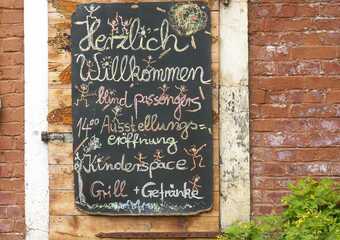 Herzlich
Willkommen
"blind passengers"
14.00 Ausstellungs=
eröffnung
Kinderspace
Grill + Getränke